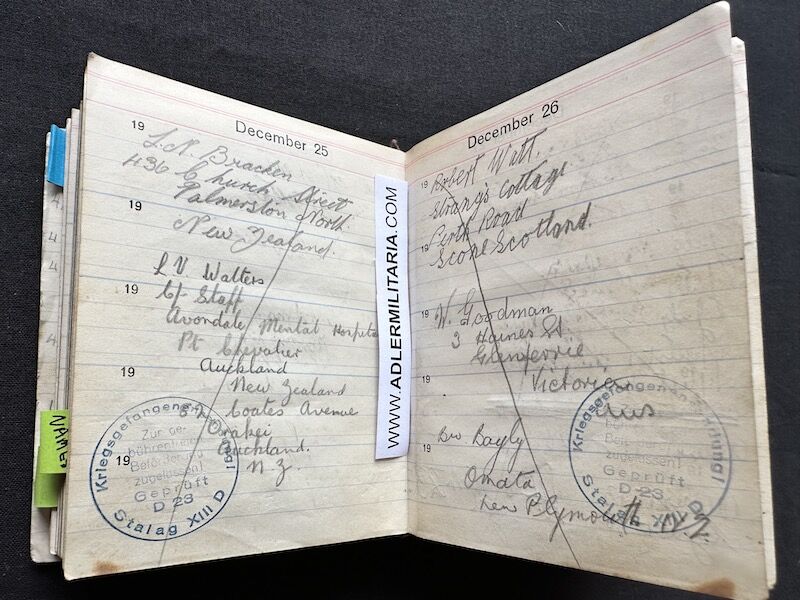 December 25
19
L.N. Bracken
436 Church Street
Palmerston North
19
New Zealand.
L V Walters
C/- Staff
19
Avondale Mental Hospital
Pt Chevalier
19
Auckland
New Zealand
Coates Avenue
Orakei
19
Auckland.
N.Z.
Kriegsgefangenensendung!
Zur ge-
bührenfreien
Beförderung
zugelassen!
Geprüft
D 23
Stalag XIII D
WWW.ADLERMILITARIA.COM
December 26
19
Robert Watt.
Strang's Cottage
Perth Road
19
Scone Scotland.
19
W. Goodman
3 Haines St
Glenferrie
19
Victoria
Aus
19
Bayly
Omata
New Plymouth N.Z.
Kriegsgefangenensendung!
bühren
Be
zugelassen!
Geprüft
D 23
Stalag XIII D
NAMES